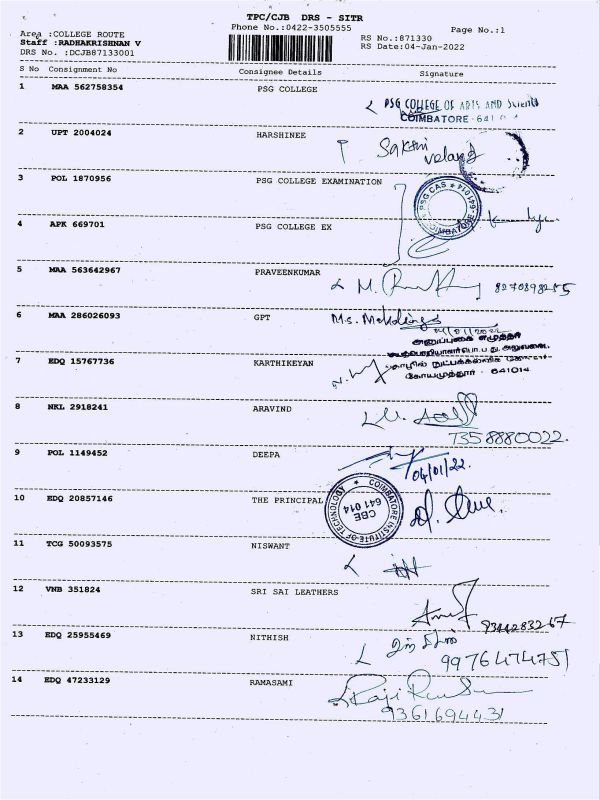 TPC/CJB DRS - SITR
Phone No.:0422-3505555
Page No.:1
Area :COLLEGE ROUTE
Staff :RADHAKRISHNAN V
DRS No. :DCJB87133001
RS No.:871330
RS Date:04-Jan-2022
S No Consignment No Consignee Details Signature
1 MAA 562758354 PSG COLLEGE
PSG COLLEGE OF ARTS AND Science
COIMBATORE - 641
2 UPT 2004024 HARSHINEE
Sakthi
3 POL 1870956 PSG COLLEGE EXAMINATION
PSG CAS ★ 641014 ★ COIMBATORE
4 APK 669701 PSG COLLEGE EX
5 MAA 563642967 PRAVEENKUMAR
6 MAA 286026093 GPT
04/01/2022
அனுப்புகை எழுத்தர்
7 EDQ 15767736 KARTHIKEYAN
கோயமுத்தூர் - 641014
8 NKL 2918241 ARAVIND
7358880022.
9 POL 1149452 DEEPA
04/01/22.
10 EDQ 20857146 THE PRINCIPAL
COIMBATORE INSTITUTE OF TECHNOLOGY ★
CBE
641 014
11 TCG 50093575 NISWANT
12 VNB 351824 SRI SAI LEATHERS
13 EDQ 25955469 NITHISH
14 EDQ 47233129 RAMASAMI
9361694431